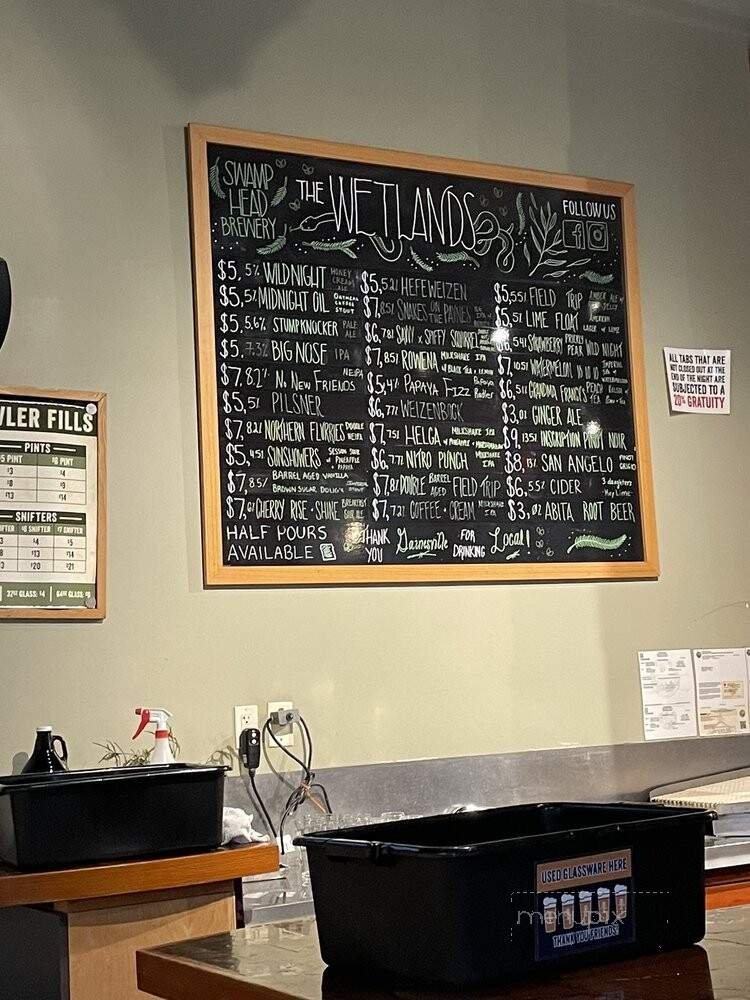 SWAMP
HEAD
BREWERY
THE WETLANDS
FOLLOW US
$5, 5% WILD NIGHT HONEY CREAM ALE
$5, 5% MIDNIGHT OIL OATMEAL COFFEE STOUT
$5, 5.6% STUMP KNOCKER PALE ALE
$5, 7.3% BIG NOSE IPA
$7, 8.2% NO NEW FRIENDS NEIPA
$5, 5% PILSNER
$7, 8.2% NORTHERN FLURRIES DOUBLE NEIPA
$5, 4.5% SUNSHOWERS SESSION SOUR w/ PINEAPPLE PAPAYA
$7, 8.5% BARREL AGED VANILLA
BROWN SUGAR
$7, CHERRY RISE · SHINE BREAKFAST SOUR ALE
HALF POURS
AVAILABLE
$5, 5.2% HEFEWEIZEN
$7, SNAKES ON THE PLAINES
$6, 6.78% SAVVY & SPIFFY SQUIRREL
$7, 8.5% ROWENA MILKSHAKE IPA
$5, 5.4% PAPAYA FIZZ PAPAYA RADLER
$6, 6.77% WEIZENBOCK
$7, 7.5% HELGA MILKSHAKE IPA w/ PINEAPPLE + MARSHMALLOW
$6, 6.77% NITRO PUNCH MILKSHAKE IPA
$7, DOUBLE BARREL AGED FIELD TRIP
$7, 7.2% COFFEE · CREAM MILKSHAKE IPA
THANK YOU Gainesville FOR DRINKING Local!
$5, 5.5% FIELD TRIP AMBER ALE w/ JELLY
$5, 5% LIME FLOAT AMERICAN LAGER w/ LIME
$6, 5.4% STRAWBERRY PRICKLY PEAR WILD NIGHT
$7, 10.5% WATERMELON 10 10 10 IMPERIAL
$6, 6.5% GRANDMA FRANCY'S PEACH TEA
$3, 0% GINGER ALE
$9, 13.5% INSCRIPTION PINOT NOIR
$8, SAN ANGELO PINOT GRIGIO
$6, 5.5% CIDER 3 daughters Key Lime
$3, 0% ABITA ROOT BEER
ALL TABS THAT ARE
NOT CLOSED OUT AT THE
END OF THE NIGHT ARE
SUBJECTED TO A
20% GRATUITY
WLER FILLS
PINTS
$5 PINT $6 PINT
$3 $4
$8 $9
$13 $14
SNIFTERS
SNIFTER $6 SNIFTER $7 SNIFTER
$4 $5
$13 $14
$20 $21
32oz GLASS: $4 64oz GLASS: $6
USED GLASSWARE HERE
THANK YOU FRIENDS!
menupix